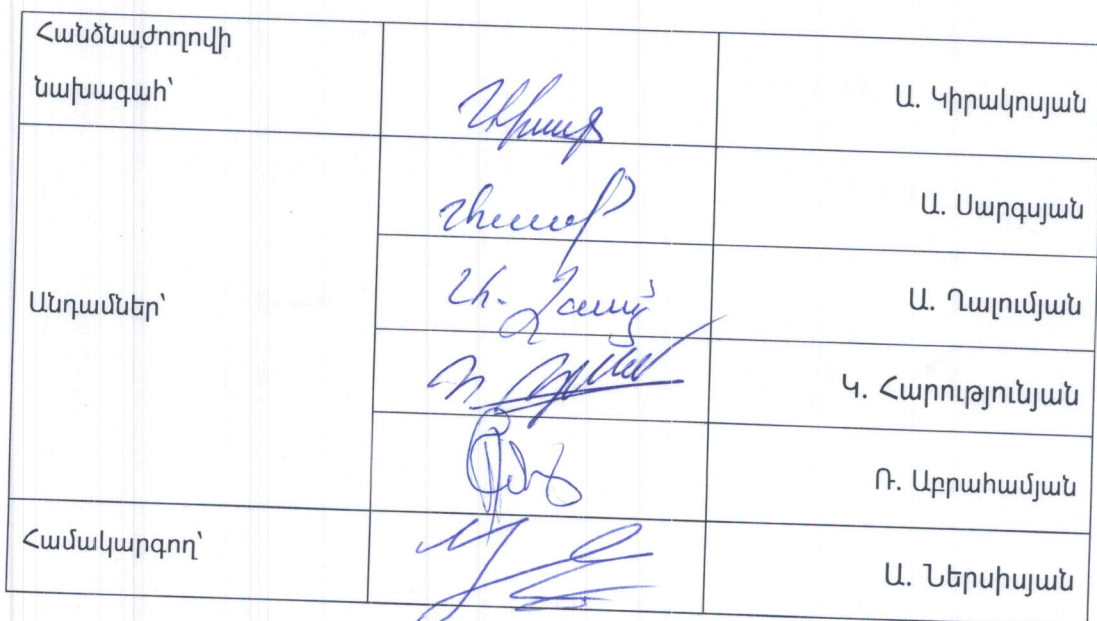 Հանձնաժողովի
նախագահ՝
Ա. Կիրակոսյան
Անդամներ՝
Ա. Սարգսյան
Ա. Ղալումյան
Կ. Հարությունյան
Ռ. Աբրահամյան
Համակարգող՝
Ա. Ներսիսյան